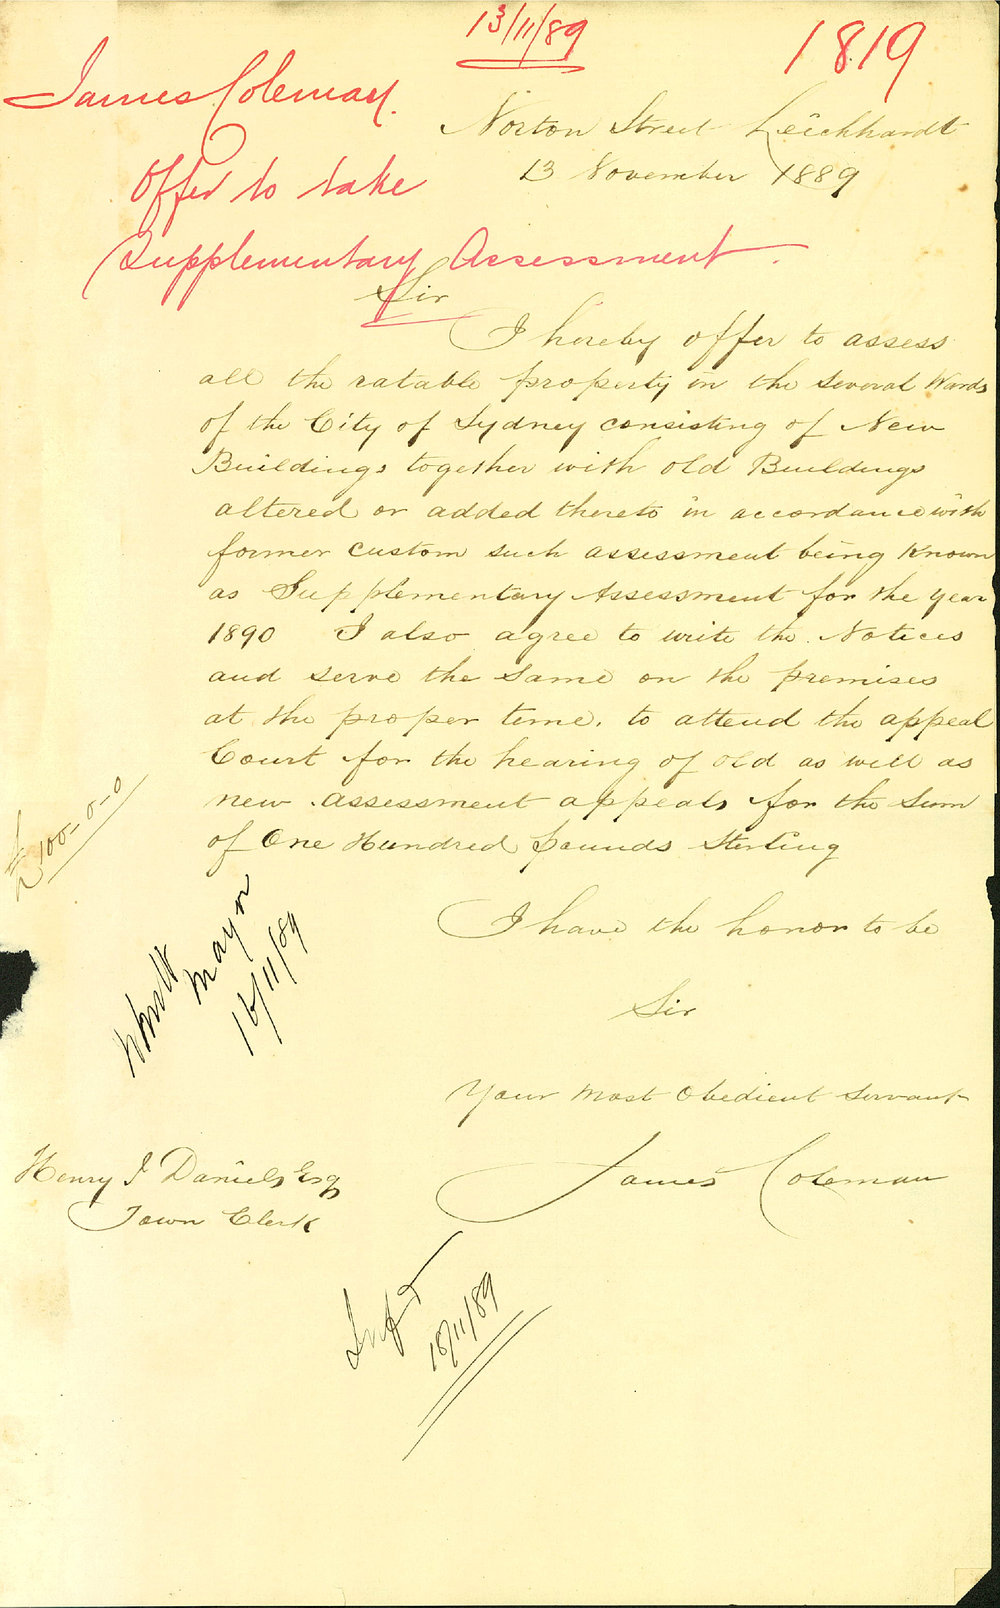 13/11/89
1819
James Coleman.
Offer to take
Supplementary Assessment.
Norton Street Leichhardt
13 November 1889
Sir
I hereby offer to assess
all the ratable property in the several Wards
of the City of Sydney consisting of New
Buildings together with old Buildings
altered or added thereto in accordance with
former custom such assessment being known
as Supplementary Assessment for the year
1890 I also agree to write the Notices
and serve the same on the premises
at the proper time. to attend the appeal
Court for the hearing of old as well as
new assessment appeals for the sum
of One Hundred pounds sterling
£100-0-0
I have the honor to be
Sir
Your most obedient servant
James Coleman
Mayor
16/11/89
Henry J Daniels Esq
Town Clerk
18/11/89